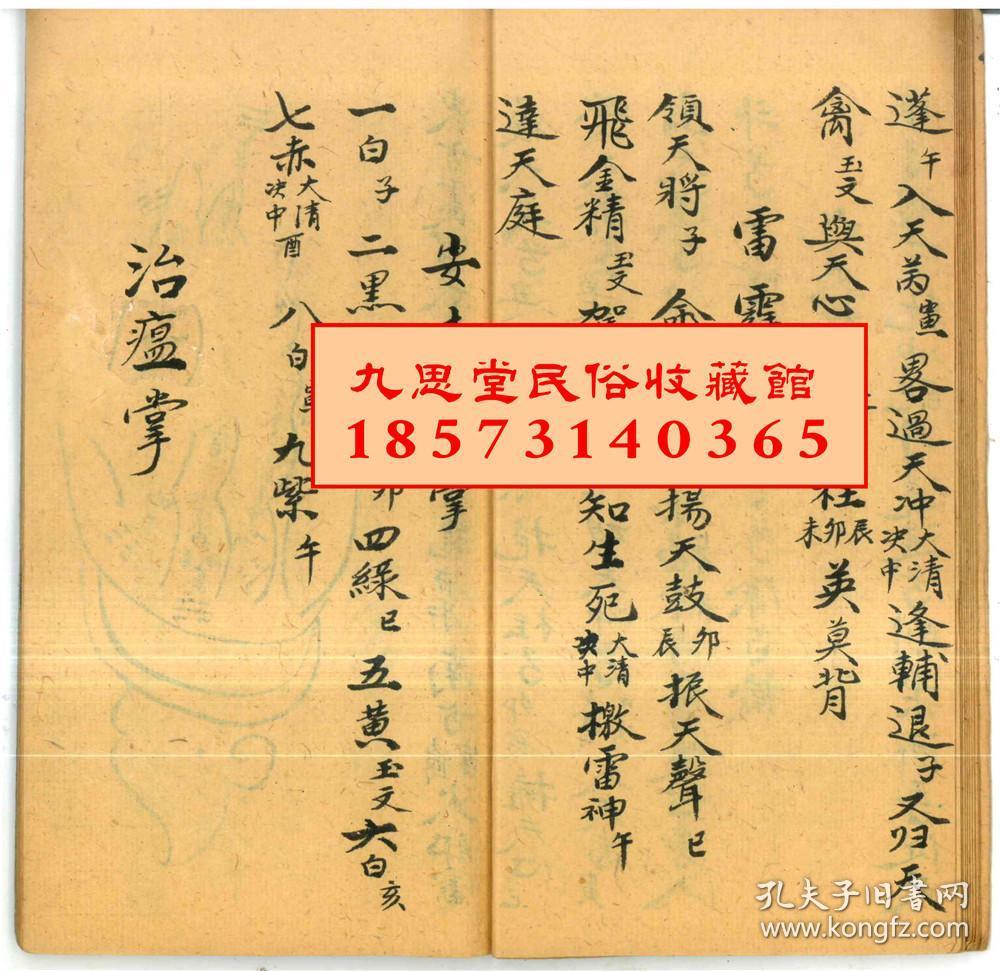 蓬午入天芮 畧過天冲大清决中逢輔退子又归天
禽玉文與天心 柱辰卯未英莫背
雷霆
領天將子 揚天鼓卯辰振天聲巳
飛金精玉文 知生死大清决中檄雷神午
達天庭
安 掌
一白子 二黑 卯四緑巳 五黄玉文六白亥
七赤大清决中酉 八白 九紫午
治瘟掌
九思堂民俗收藏館
18573140365
孔夫子旧书网
www.kongfz.com